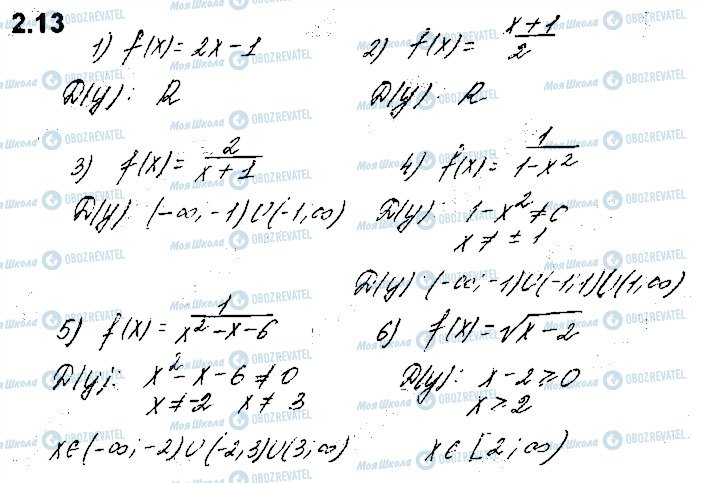 2.13
1) f(x) = 2x - 1
D(y): R
2) f(x) = (x + 1)/2
D(y): R
3) f(x) = 2/(x + 1)
D(y): (-∞; -1) ∪ (-1; ∞)
4) f(x) = 1/(1 - x²)
D(y): 1 - x² ≠ 0
x ≠ ± 1
D(y): (-∞; -1) ∪ (-1; 1) ∪ (1; ∞)
5) f(x) = 1/(x² - x - 6)
D(y): x² - x - 6 ≠ 0
x ≠ -2 x ≠ 3
x ∈ (-∞; -2) ∪ (-2; 3) ∪ (3; ∞)
6) f(x) = √(x - 2)
D(y): x - 2 ≥ 0
x ≥ 2
x ∈ [2; ∞)
Моя Школа OBOZREVATEL